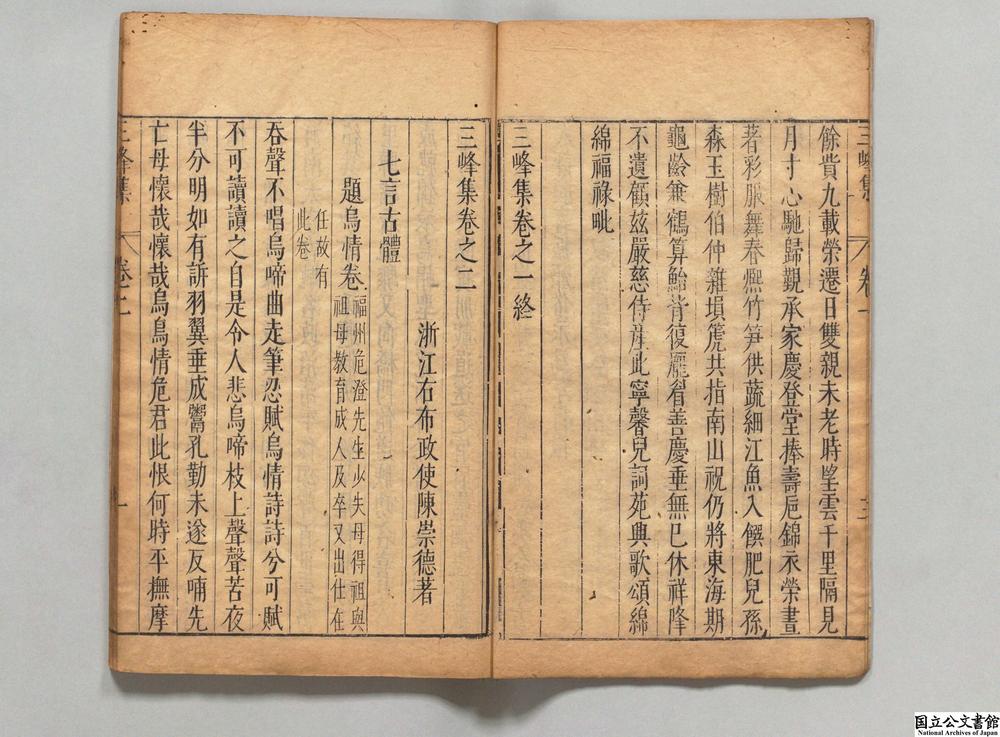 餘貲九載榮遷日雙親未老時望雲千里隔見
月寸心馳歸覲承家慶登堂捧壽巵錦衣榮晝
著彩服舞春熈竹笋供蔬細江魚入饌肥兒孫
森玉樹伯仲雜塤箎共指南山祝仍將東海期
龜齡兼鶴算鮐背復龎眉善慶垂無已休祥降
不遺顧玆嚴慈侍產此寧馨兒詞苑興歌頌綿
綿福祿毗
三峰集卷之一終
三峰集 卷一 三
三峰集卷之二
浙江右布政使陳崇德著
七言古體
題烏情卷 福州危澄先生少失母得祖與
祖母教育成人及卒又出仕在
任故有
此卷
吞聲不唱烏啼曲走筆忍賦烏情詩詩兮可賦
不可讀讀之自是令人悲烏啼枝上聲聲苦夜
半分明如有訴羽翼垂成鬻孔勤未遂反哺先
亡母懷哉懷哉烏鳥情危君此恨何時平撫摩
三峰集 卷二 一
国立公文書館
National Archives of Japan